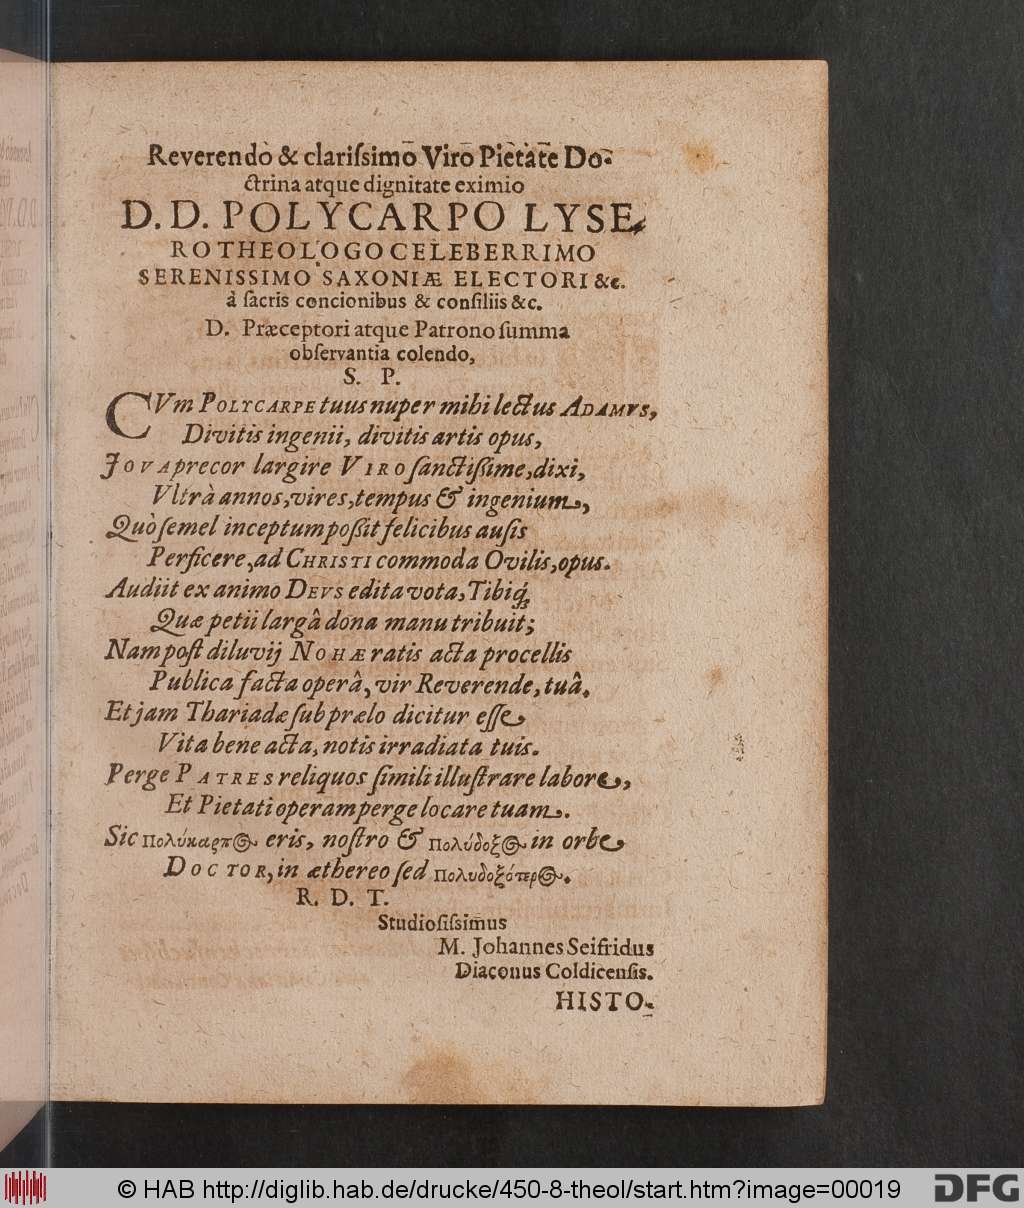 Reverendo & clarissimo Viro Pietate Do-
ctrina atque dignitate eximio
D. D. POLYCARPO LYSE-
RO THEOLOGO CELEBERRIMO
SERENISSIMO SAXONIÆ ELECTORI &c.
à sacris concionibus & consiliis &c.
D. Præceptori atque Patrono summa
observantia colendo,
S. P.
CVm POLYCARPE tuus nuper mihi lectus ADAMVS,
Divitis ingenii, divitis artis opus,
JOVA precor largire VIRO sanctißime, dixi,
Vltrà annos, vires, tempus & ingenium,
Quò semel inceptum poßit felicibus ausis
Perficere, ad CHRISTI commoda Ovilis, opus.
Audiit ex animo DEVS edita vota, Tibiq́;
Quæ petii largâ dona manu tribuit;
Nam post diluvij NOHÆ ratis acta procellis
Publica facta operâ, vir Reverende, tuâ.
Et jam Thariadæ sub prælo dicitur esse
Vita bene acta, notis irradiata tuis.
Perge PATRES reliquos simili illustrare labore,
Et Pietati operam perge locare tuam.
Sic Πολύκαρπος eris, nostro & Πολύδοξος in orbe
DOCTOR, in æthereo sed Πολυδοξότερος.
R. D. T.
Studiosissimus
M. Johannes Seifridus
Diaconus Coldicensis.
HISTO-
© HAB http://diglib.hab.de/drucke/450-8-theol/start.htm?image=00019
DFG